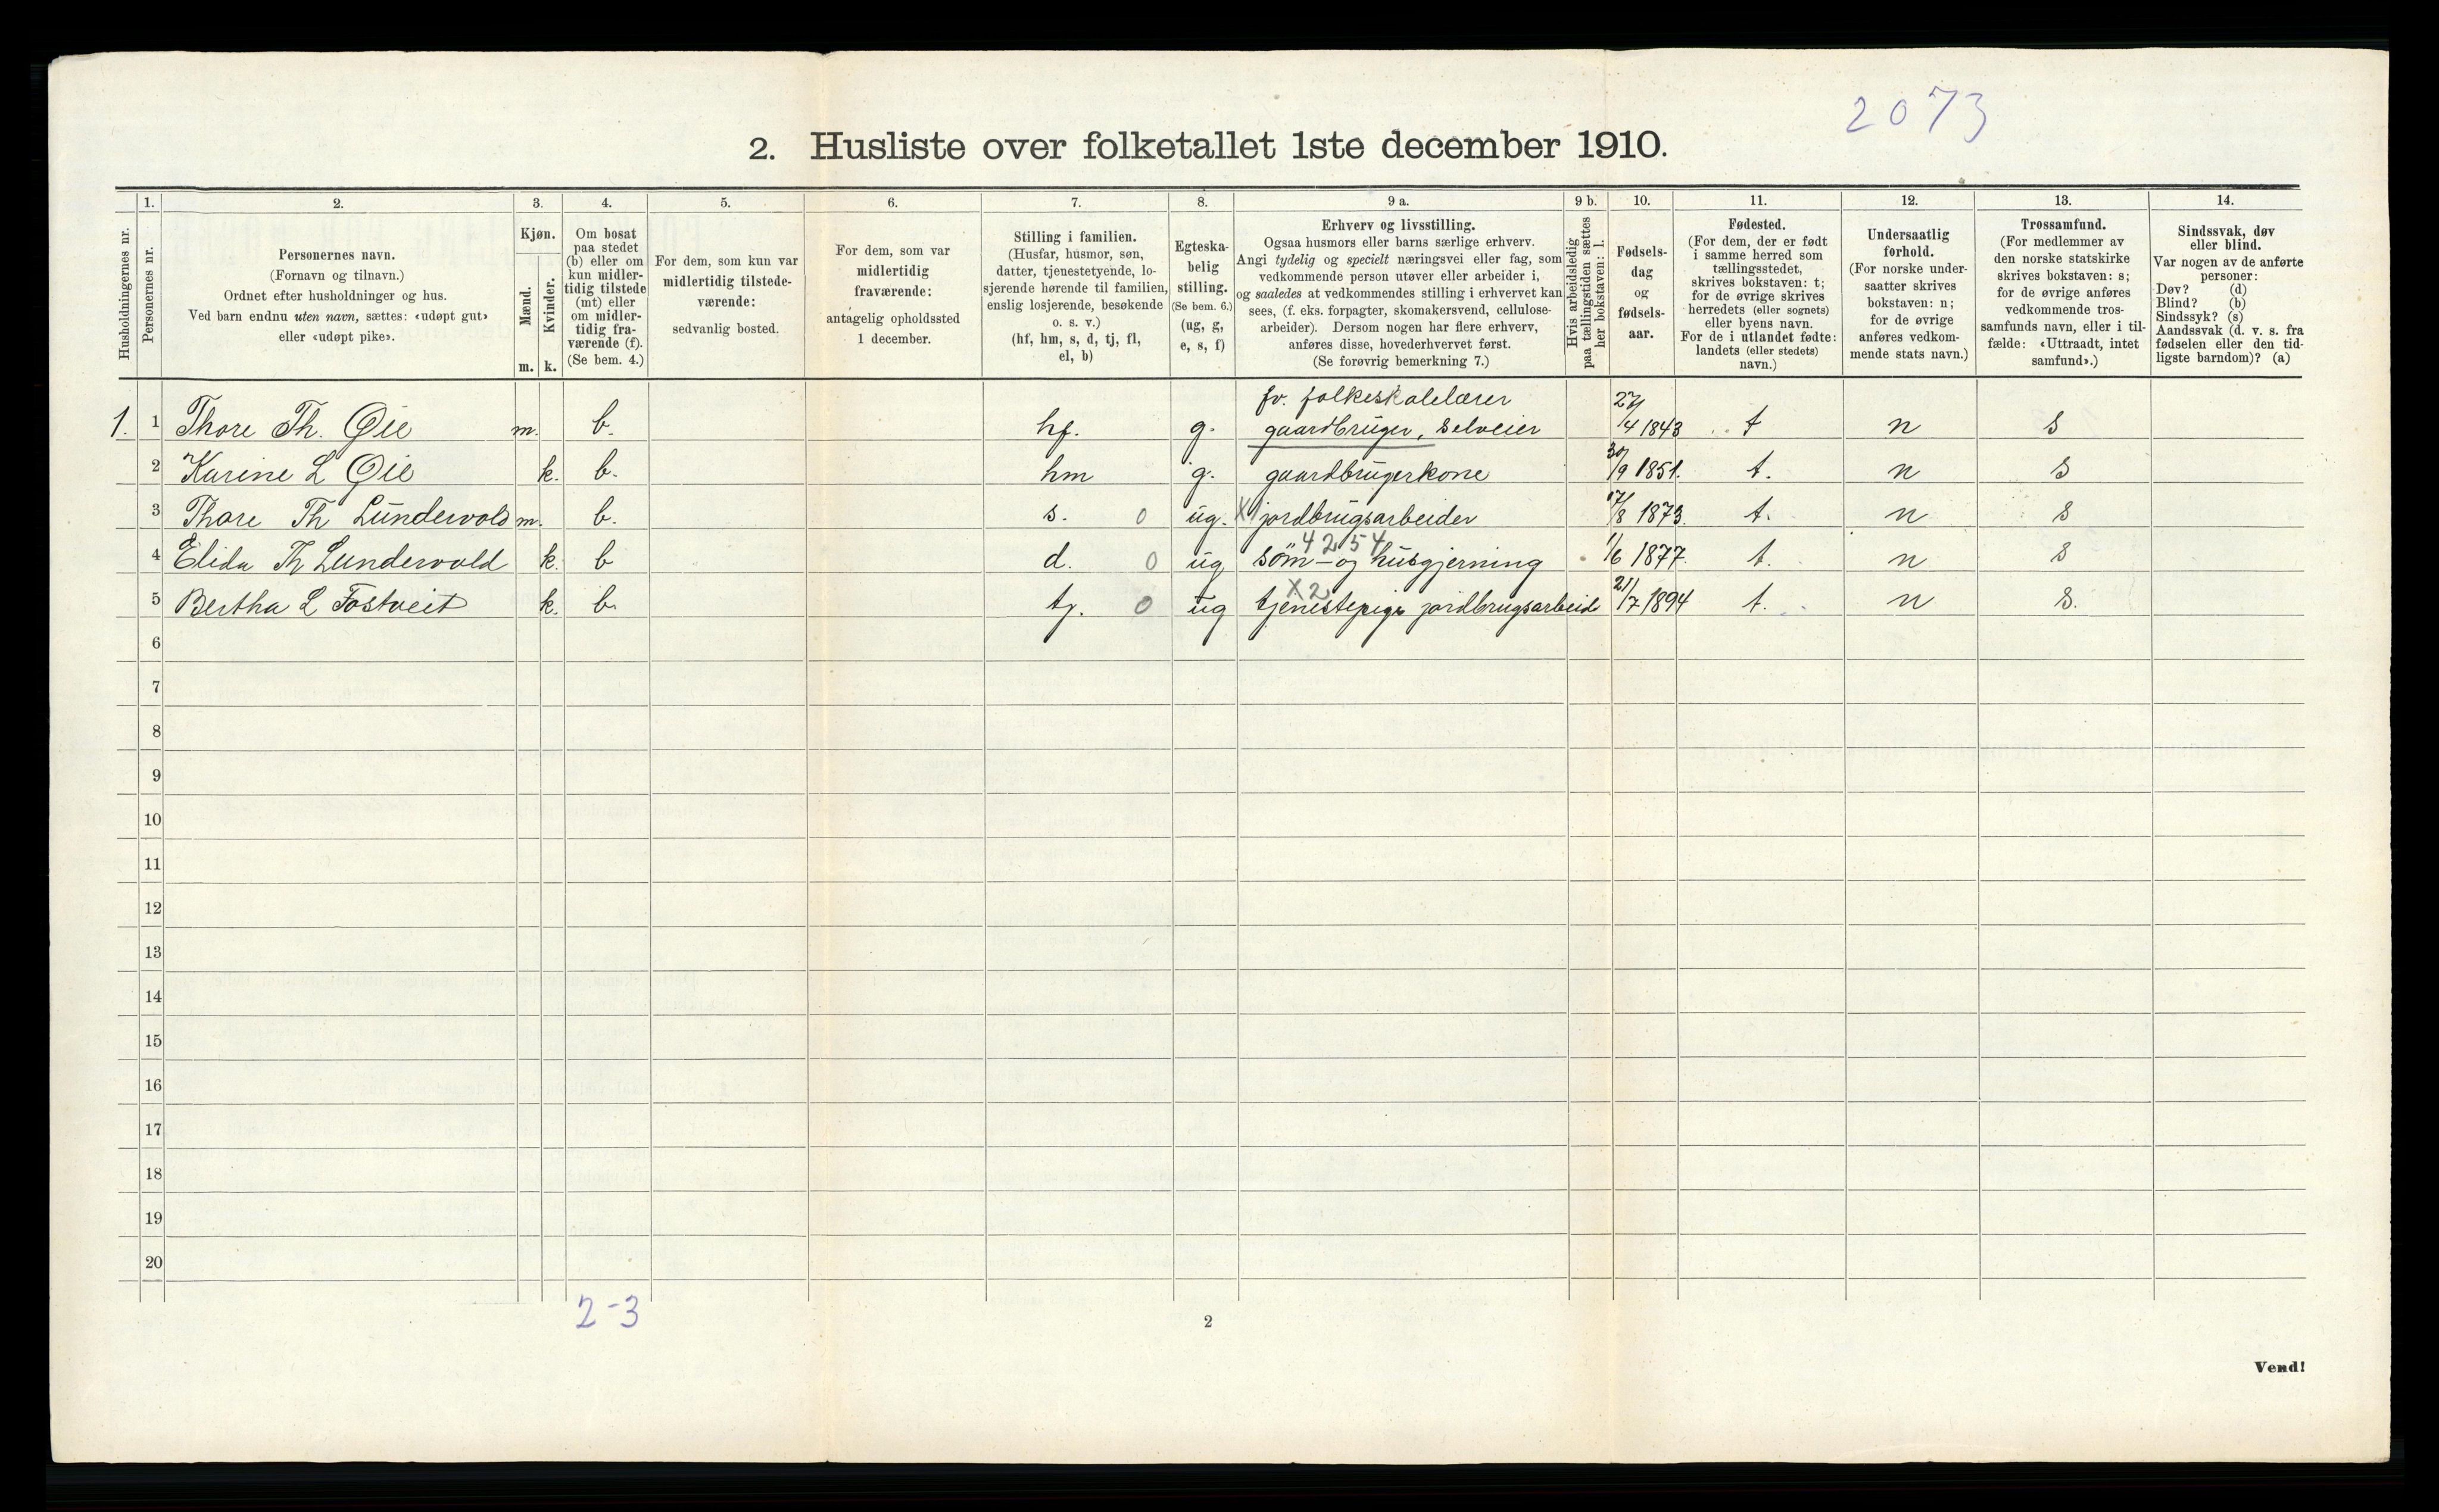 2073
2. Husliste over folketallet 1ste december 1910.
1. 2. 3. 4. 5. 6. 7. 8. 9 a. 9 b. 10. 11. 12. 13. 14.
Husholdningernes nr.
Personernes nr.
Personernes navn.
(Fornavn og tilnavn.)
Ordnet efter husholdninger og hus.
Ved barn endnu uten navn, sættes: «udøpt gut»
eller «udøpt pike».
Kjøn.
Mænd.
Kvinder.
m. k.
Om bosat
paa stedet
(b) eller om
kun midler-
tidig tilstede
(mt) eller
om midler-
tidig fra-
værende (f).
(Se bem. 4.)
For dem, som kun var
midlertidig tilstede-
værende:
sedvanlig bosted.
For dem, som var
midlertidig
fraværende:
antagelig opholdssted
1 december.
Stilling i familien.
(Husfar, husmor, søn,
datter, tjenestetyende, lo-
sjerende hørende til familien,
enslig losjerende, besøkende
o. s. v.)
(hf, hm, s, d, tj, fl,
el, b)
Egteska-
belig
stilling.
(Se bem. 6.)
(ug, g,
e, s, f)
Erhverv og livsstilling.
Ogsaa husmors eller barns særlige erhverv.
Angi tydelig og specielt næringsvei eller fag, som
vedkommende person utøver eller arbeider i,
og saaledes at vedkommendes stilling i erhvervet kan
sees, (f. eks. forpagter, skomakersvend, cellulose-
arbeider). Dersom nogen har flere erhverv,
anføres disse, hovederhvervet først.
(Se forøvrig bemerkning 7.)
Hvis arbeidsledig
paa tællingstiden sættes
her bokstaven: l.
Fødsels-
dag
og
fødsels-
aar.
Fødested.
(For dem, der er født
i samme herred som
tællingsstedet,
skrives bokstaven: t;
for de øvrige skrives
herredets (eller sognets)
eller byens navn.
For de i utlandet fødte:
landets (eller stedets)
navn.)
Undersaatlig
forhold.
(For norske under-
saatter skrives
bokstaven: n;
for de øvrige
anføres vedkom-
mende stats navn.)
Trossamfund.
(For medlemmer av
den norske statskirke
skrives bokstaven: s;
for de øvrige anføres
vedkommende tros-
samfunds navn, eller i til-
fælde: «Uttraadt, intet
samfund».)
Sindssvak, døv
eller blind.
Var nogen av de anførte
personer:
Døv? (d)
Blind? (b)
Sindssyk? (s)
Aandssvak (d. v. s. fra
fødselen eller den tid-
ligste barndom)? (a)
fv. folkeskolelærer
1. 1 Thore Th. Øie m. b. hf. g. gaardbruger, selveier 27/4 1843 t n s
2 Karine L Øie k. b. hm g. gaardbrugerkone 30/9 1851. t. n s
3 Thore Th Lundevold m. b. s. 0 ug. X jordbrugsarbeider 17/8 1873. t. n s
4254
4 Elida Th Lundevold k. b d. 0 ug søm- og husgjerning 1/6 1877. t. n s
X2
5 Bertha L Fostveit k. b. tj. 0 ug tjenestepige jordbrugsarbeid 21/7 1894 t. n s.
6
7
8
9
10
11
12
13
14
15
16
17
18
19
20
2-3
2
Vend!